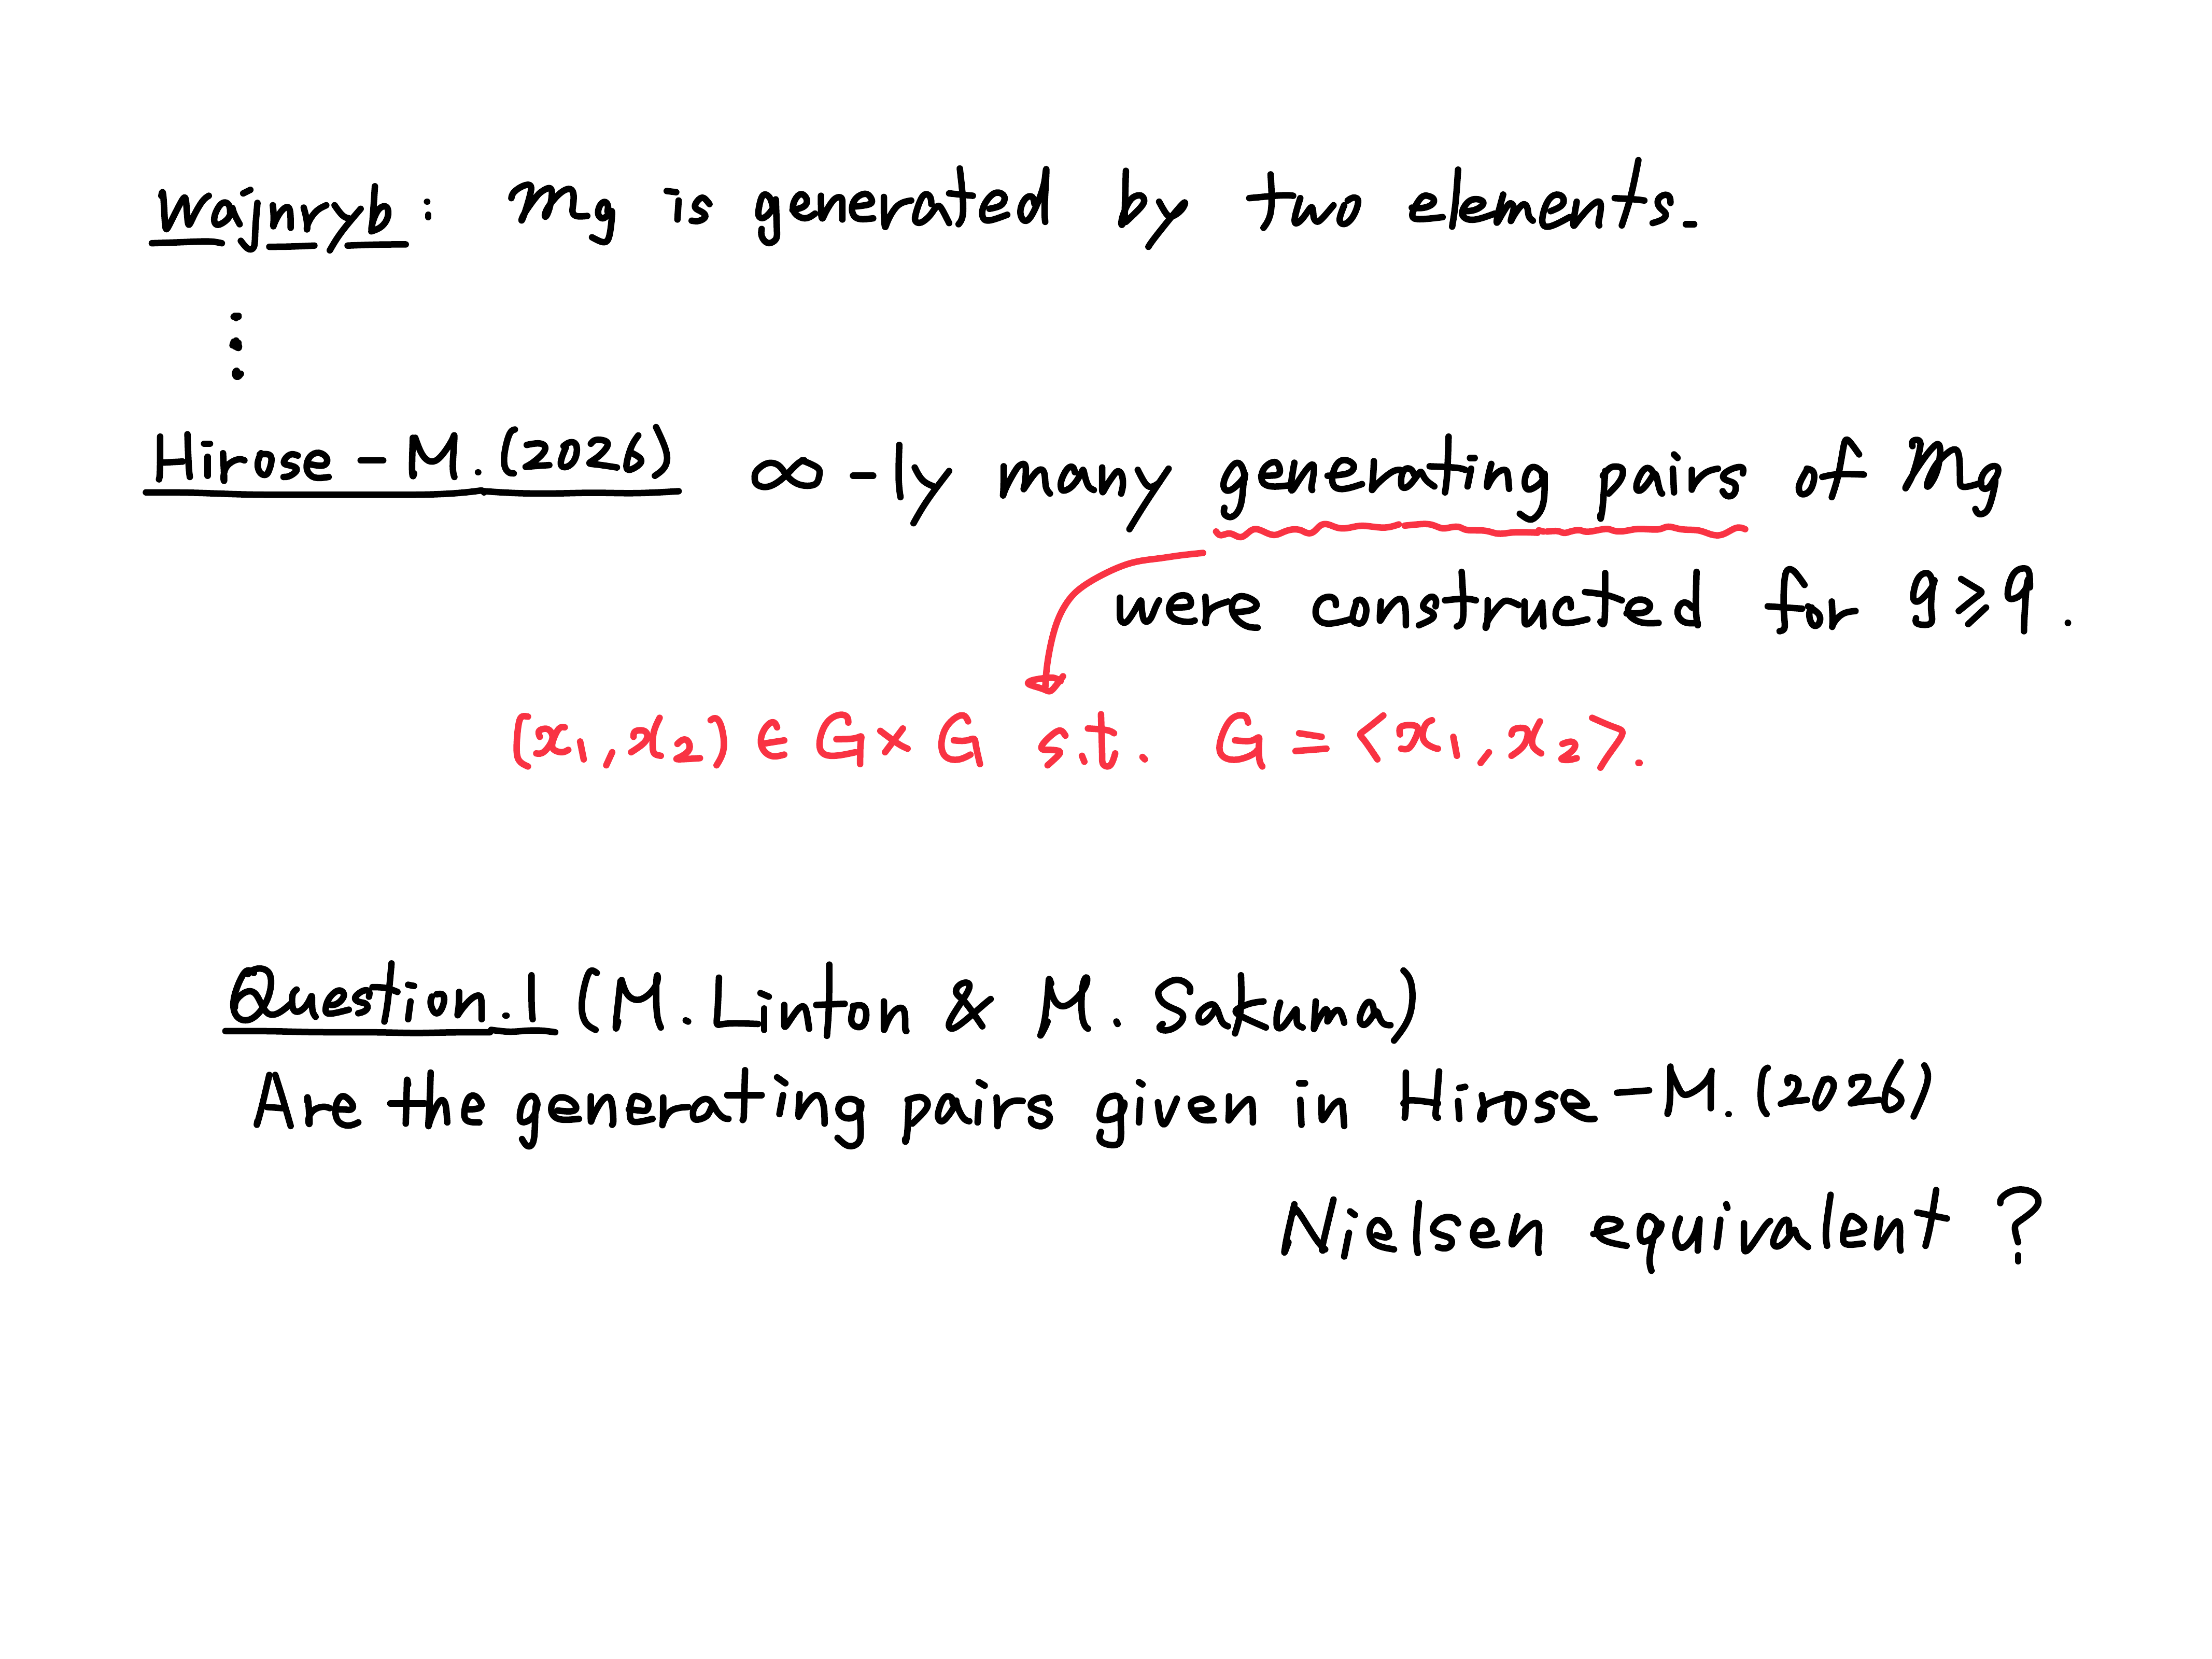 Wajnryb : Mg is generated by two elements.
⋮
Hirose - M. (2026) ∞ - ly many generating pairs of Mg
were constructed for g ≥ 9.
(x1, x2) ∈ G × G s.t. G = <x1, x2>.
Question.1 (M. Linton & M. Sakuma)
Are the generating pairs given in Hirose - M. (2026)
Nielsen equivalent ?